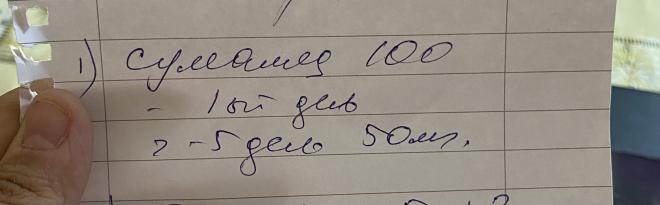 1) сумамед 100
- 1ый день
2 -5 день 50мг.